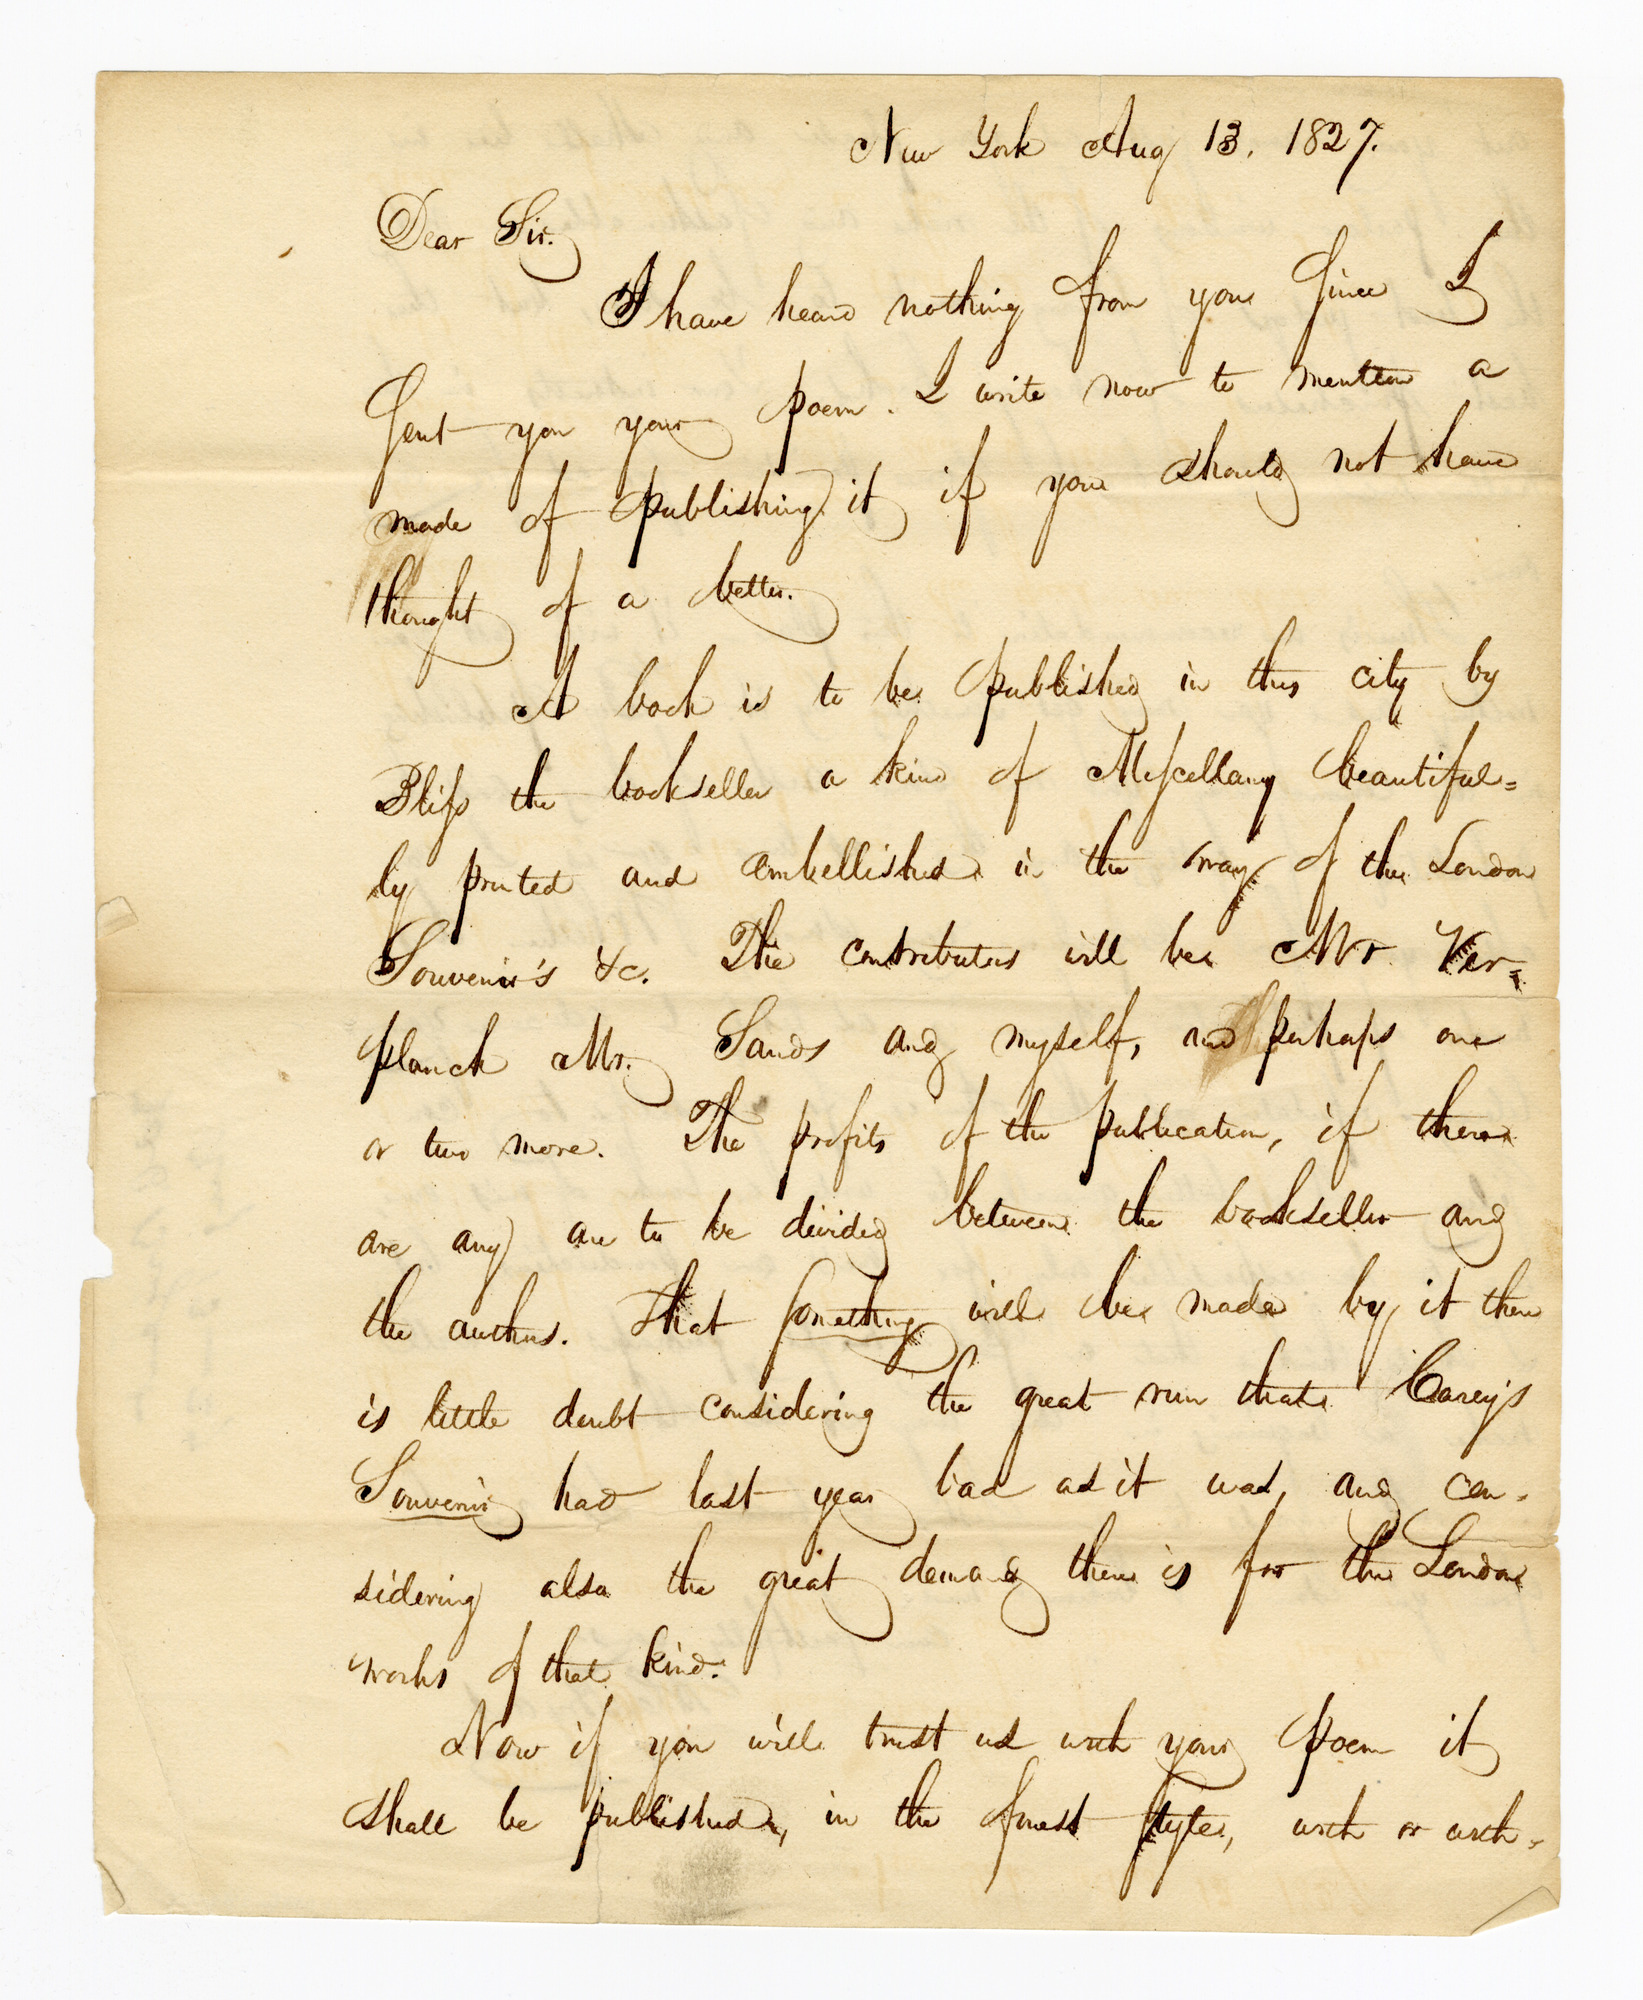 New York Aug 13, 1827.
Dear Sir.
I have heard nothing from you since I
sent you your poem. I write now to mention a
mode of publishing it if you should not have
thought of a better.
A book is to be published in this city by
Bliss the bookseller a kind of Miscellany beautiful=
ly printed and embellished in the way of the London
Souvenir's &c. The contributors will be Mr Ver=
planck Mr. Sands and myself, and perhaps one
or two more. The profits of the publication, if there
are any are to be divided between the bookseller and
the authors. That something will be made by it there
is little doubt considering the great run that Carey's
Souvenir had last year bad as it was, and con-
sidering also the great demand there is for the London
works of that kind.
Now if you will trust us with your poem it
shall be published, in the finest style, with or with-